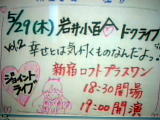 5/29(木) 岩井小百合 トークライブ
vol.2 幸せとは気付くものなんだよっ♡
ジョイント
ライブ
新宿ロフトプラスワン
18:30 開場
19:00 開演